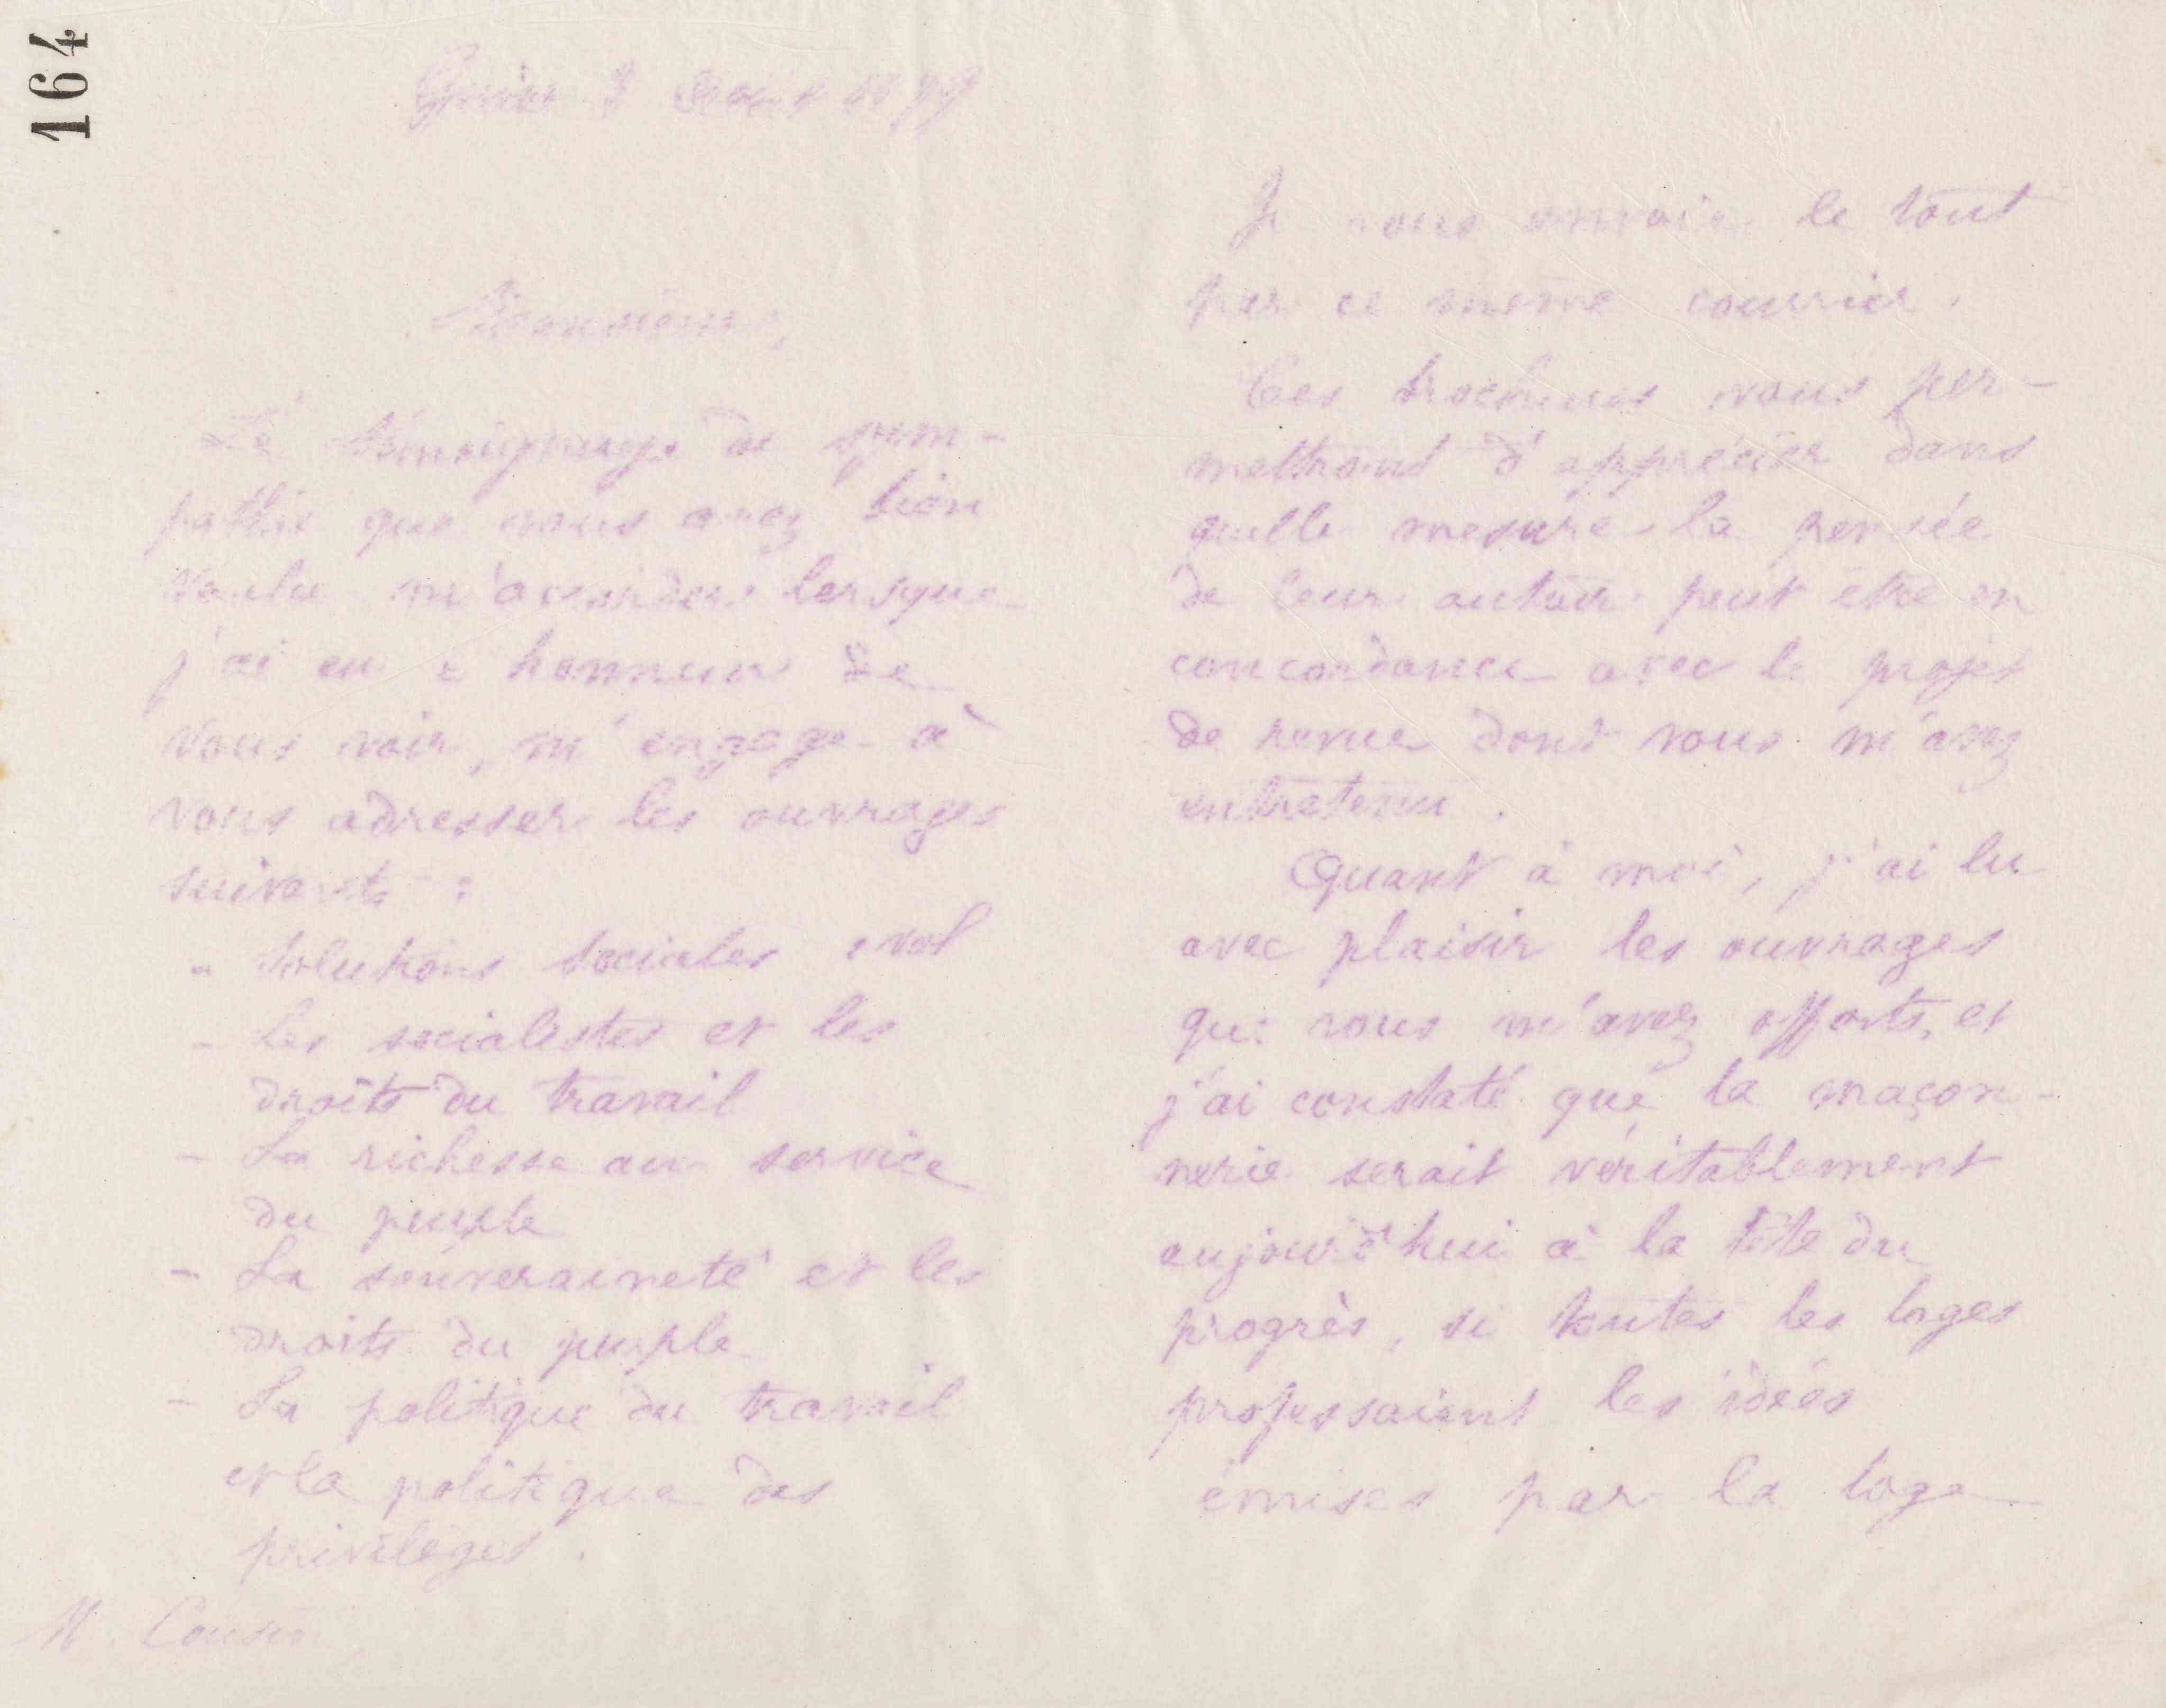 164
Guise 1877
Monsieur,
Le témoignage de sym-
pathie que vous avez bien
voulu m'accorder lorsque
j'ai eu honneur de
vous voir, m'engage à
vous adresser les ouvrages
suivants :
- Solutions sociales 1 vol
- Les socialistes et les
droits du travail
- La richesse au service
du peuple
- La souveraineté et les
droits du peuple
- La politique du travail
et la politique des
privilèges.
M. Cousin
Je vous envoie le tout
par ce même courrier.
Ces brochures vous per-
mettront d'apprécier dans
quelle mesure la pensée
de leur auteur peut être en
concordance avec le projet
de revue dont vous m'avez
entretenu.
Quant à moi, j'ai lu
avec plaisir les ouvrages
que vous m'avez offerts, et
j'ai constaté que la maçon-
nerie serait véritablement
aujourd'hui à la tête du
progrès, si toutes les loges
professaient les idées
émises par la loge